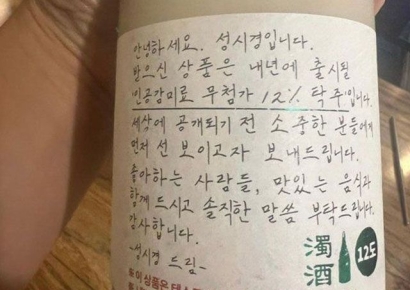 안녕하세요. 성시경입니다.
받으신 상품은 내년에 출시될
인공감미료 무첨가 12% 탁주입니다.
세상에 공개되기 전 소중한 분들에게
먼저 선 보이고자 보내드립니다.
좋아하는 사람들, 맛있는 음식과
함께 드시고 솔직한 말씀 부탁드립니다.
감사합니다.
-성시경 드림-
濁酒
12도
이 상품은